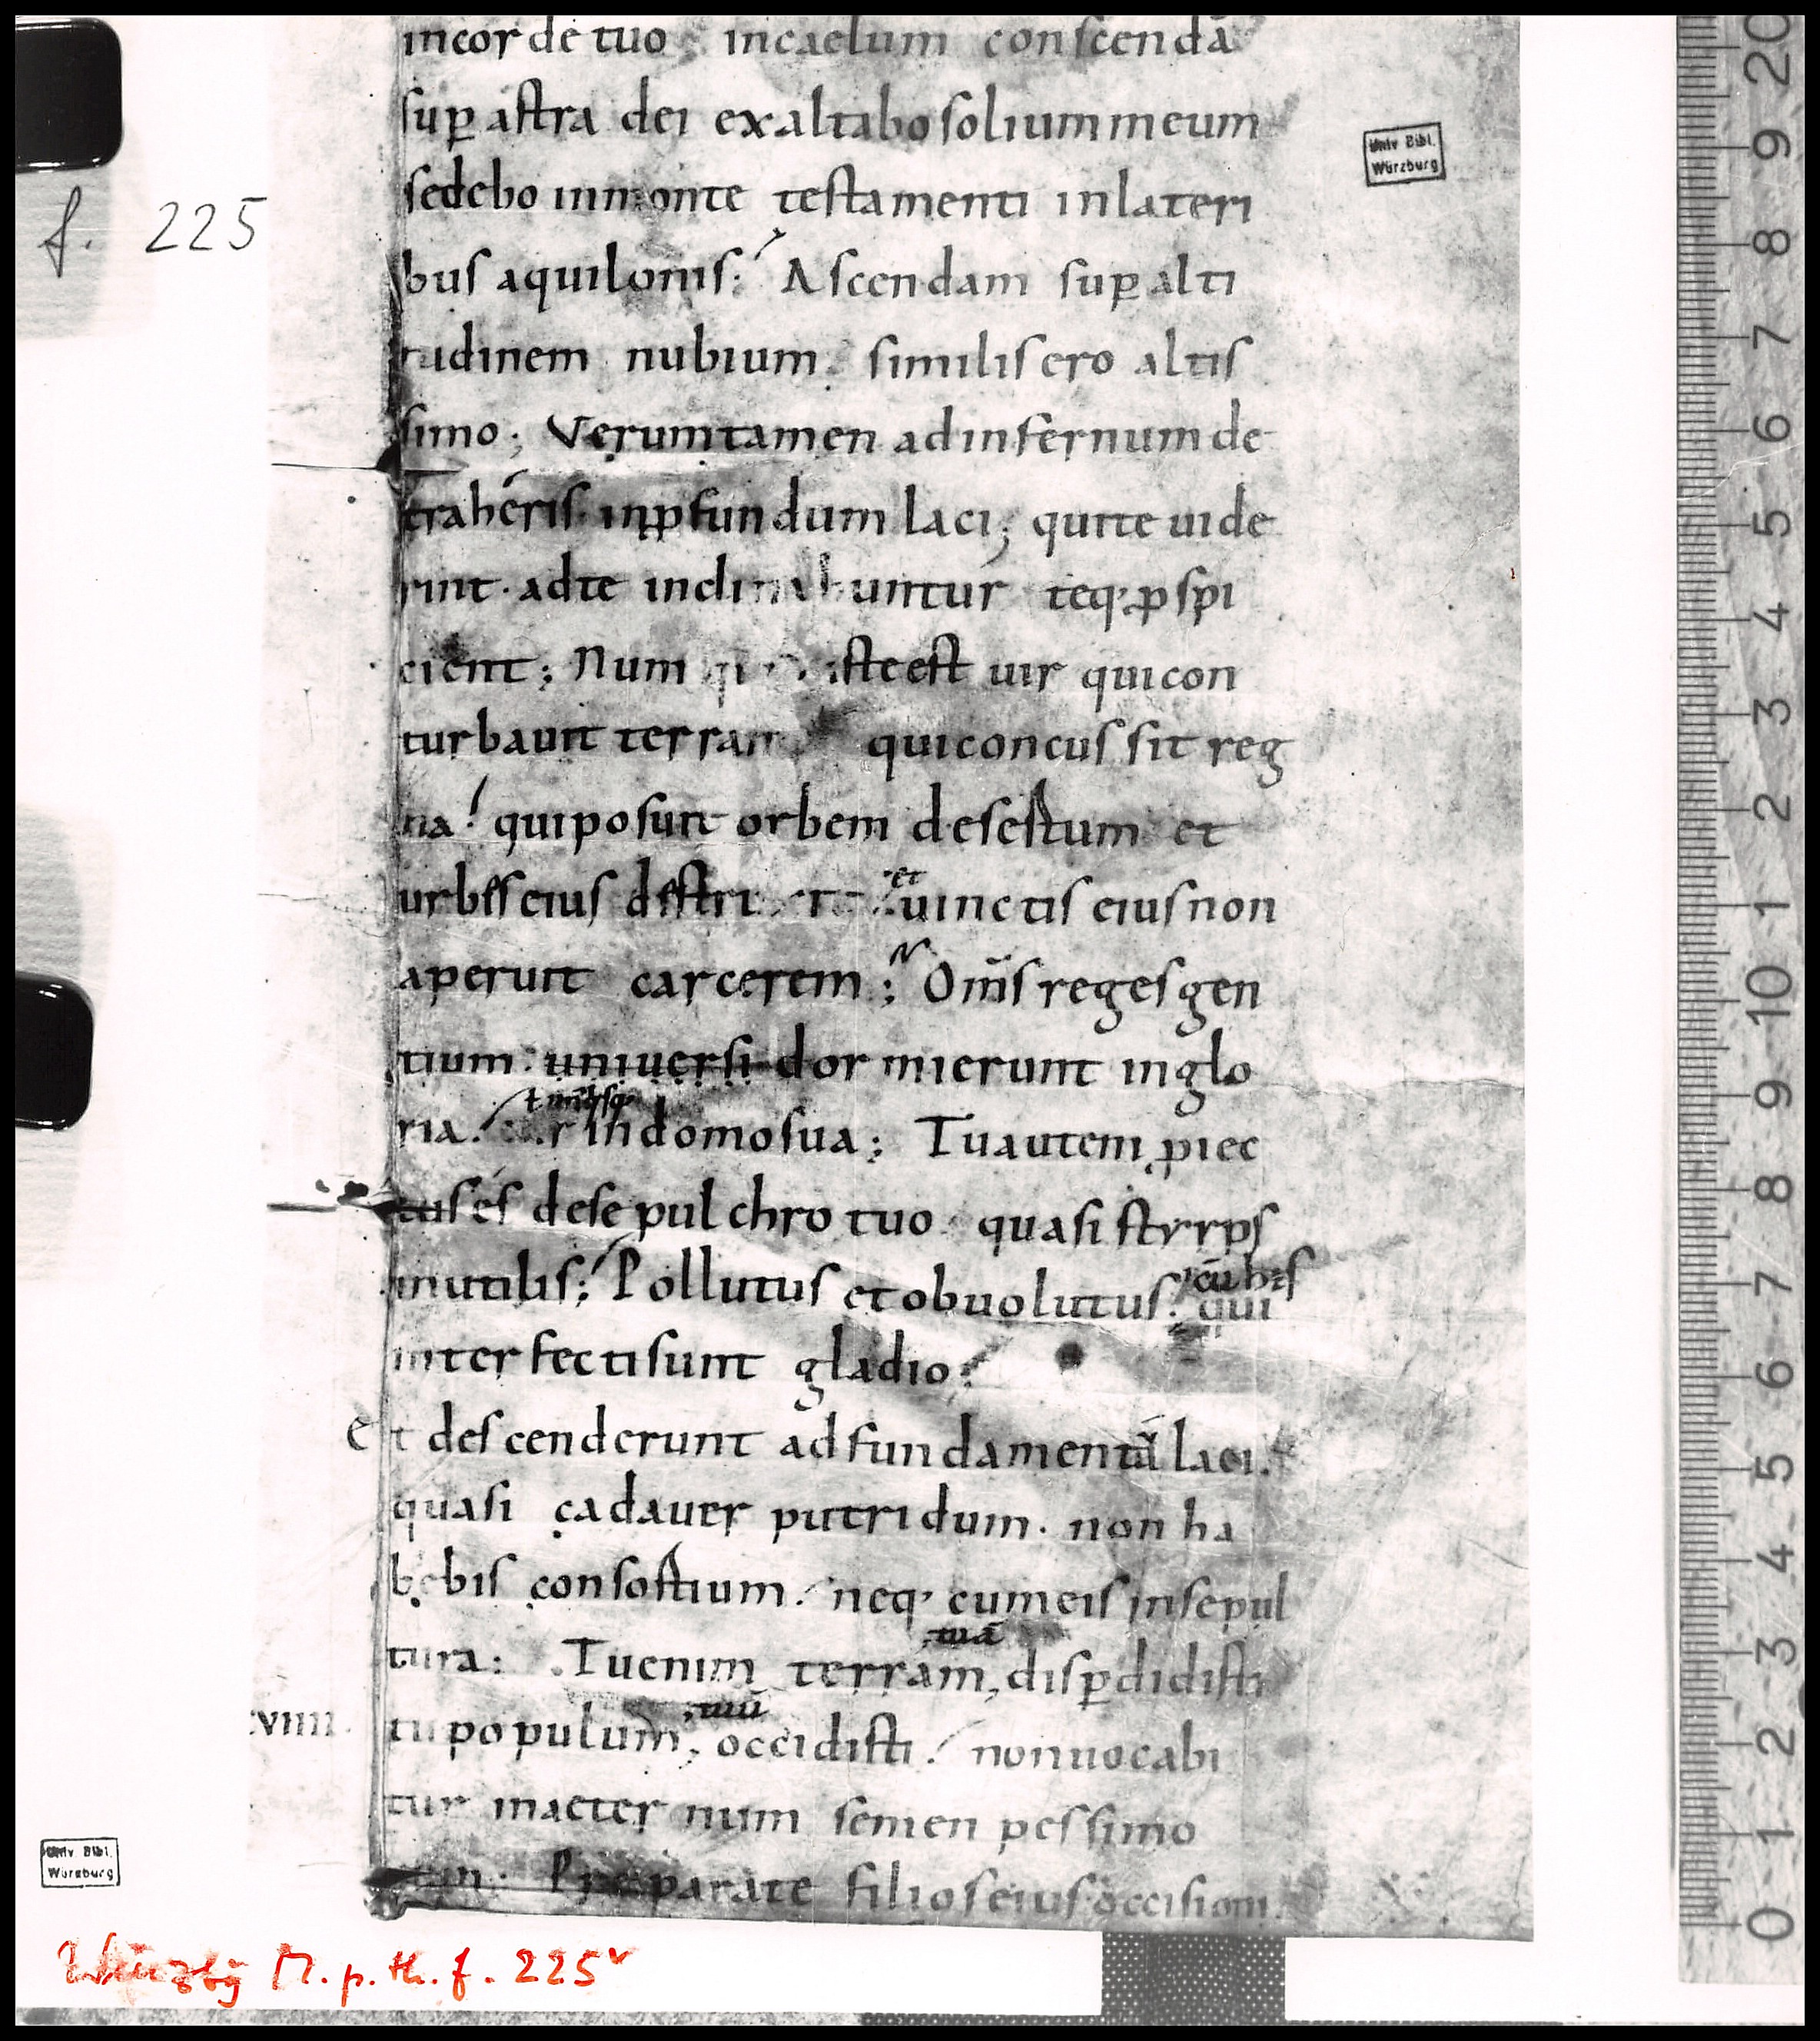 incorde tuo incaelum conscendā
suꝑ astra dei exaltabo solium meum
Univ. Bibl.
Würzburg
sedebo inmonte testamenti inlateri
f. 225
bus aquilonis: Ascendam suꝑ alti
tudinem nubium. similis ero altis
simo; Verumtamen adinfernum de
traheris inꝓfundum laci; quite uide
rint. adte inclinabuntur teq; ꝓspi
cient; Num iste est uir quicon
turbauit terram quiconcussit reg
na! quiposuit orbem desertum et
et
urbes eius uinctis eius non
aperuit carcerem; Om̅s reges gen
tium. uniuersi dormierunt inglo
ria. indomosua; Tuautem ꝓiec
tus és desepulchro tuo quasi styrps
inutilis; Pollutus et obuolutus. qui
cū his
interfectisunt gladio.
et descenderunt adfundamenta laci.
quasi cadauer putridum. non ha
bebis consortium. neq; cumeis insepul
tuā
tura: Tuenim terram, disꝑdidisti
tuū
VIIII. tupopulum, occidisti. nonuocabi
tur inaeternum semen pessimo
Univ. Bibl.
Würzburg
rum. Preparate filios eius occisioni.
Würzbg M. p. th. f. 225v
20
9
8
7
6
5
4
3
2
1
10
9
8
7
6
5
4
3
2
1
0